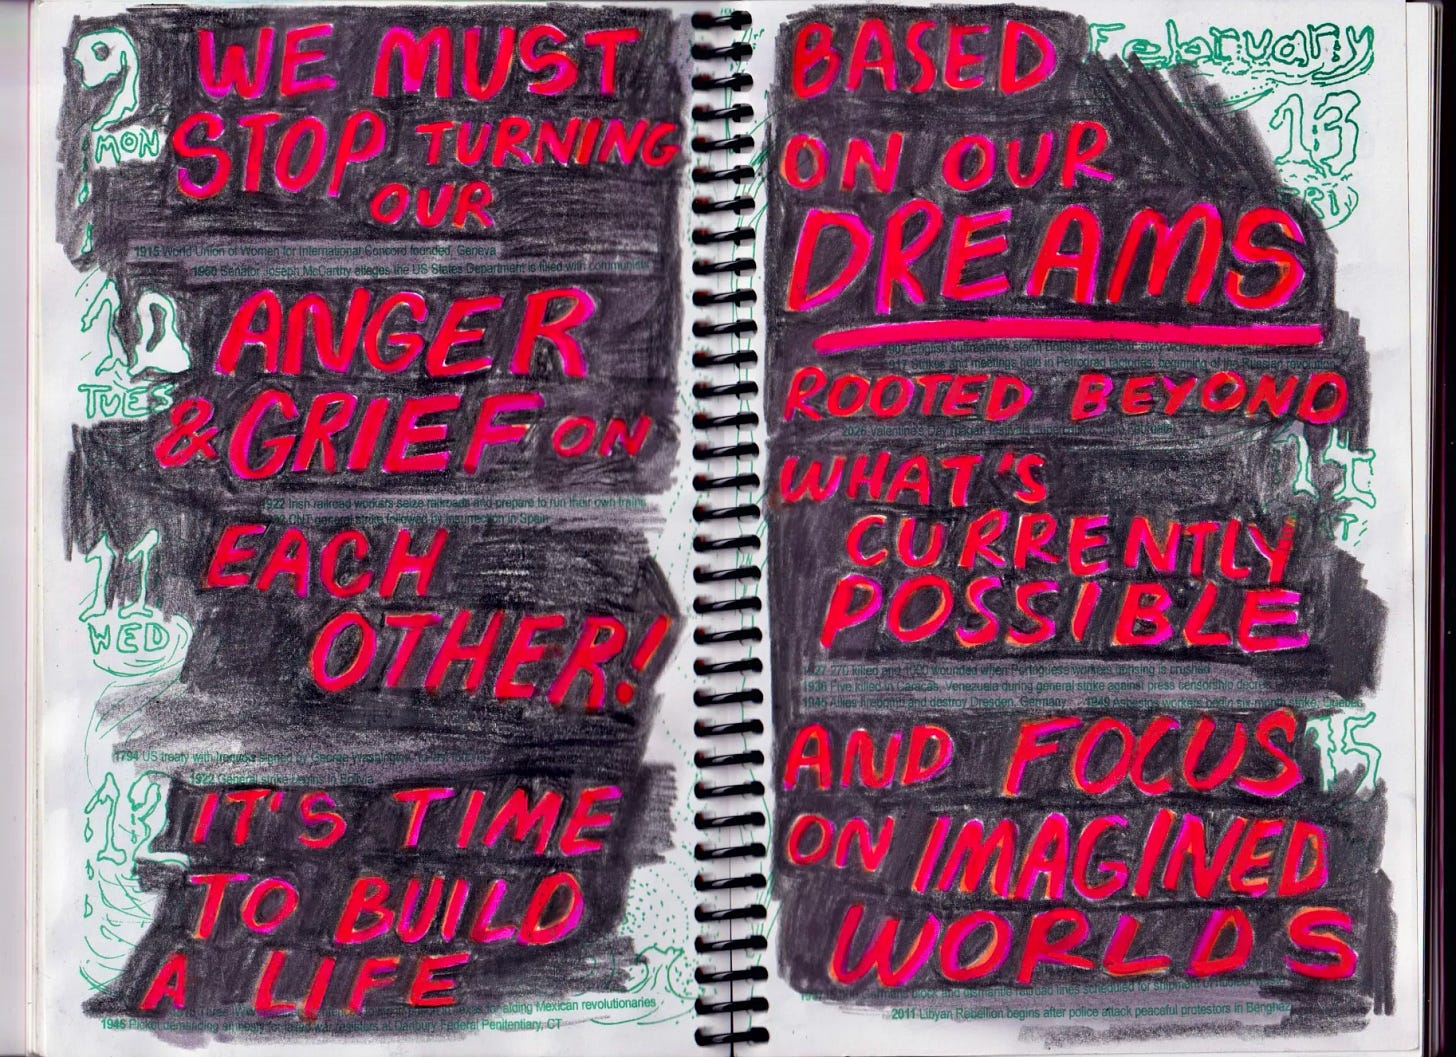 9
MON
WE MUST
STOP TURNING
OUR
1915 World Union of Women for International Concord founded, Geneva
1950 Senator Joseph McCarthy alleges the US States Department is filled with communists
10
TUES
ANGER
& GRIEF ON
1922 Irish railroad workers seize railroads and prepare to run their own trains
CNT general strike followed by insurrection in Spain
11
WED
EACH
OTHER!
1794 US treaty with Iroquois signed by George Washington
1922 General strike begins in Bolivia
12
IT'S TIME
TO BUILD
A LIFE
for aiding Mexican revolutionaries
1946 Picket demanding amnesty for jailed war resisters at Danbury Federal Penitentiary, CT
February
13
FRI
BASED
ON OUR
DREAMS
and meetings held in Petrograd factories, beginning of the Russian
ROOTED BEYOND
2026 Valentine's Day
14
WHAT'S
CURRENTLY
POSSIBLE
1927 270 killed and 1000 wounded when Portuguese workers uprising is crushed
1936 Five killed in Caracas, Venezuela during general strike against press censorship decree
1945 Allies firebomb and destroy Dresden, Germany 1949 Asbestos workers begin six-month strike, Quebec
15
AND FOCUS
ON IMAGINED
WORLDS
block and dismantle railroad lines scheduled for shipment of
2011 Libyan Rebellion begins after police attack peaceful protestors in Benghazi